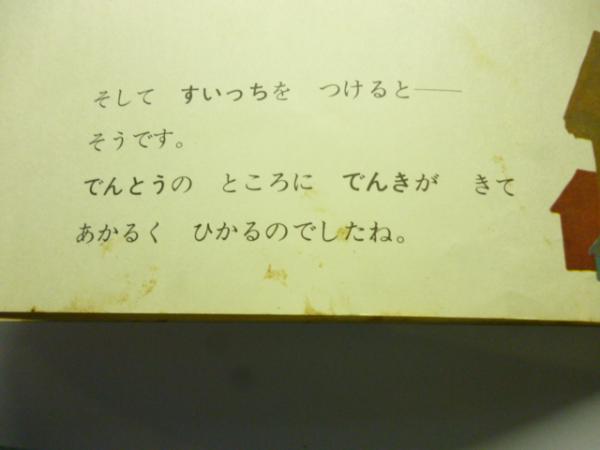 そして　すいっちを　つけると──
そうです。
でんとうの　ところに　でんきが　きて
あかるく　ひかるのでしたね。